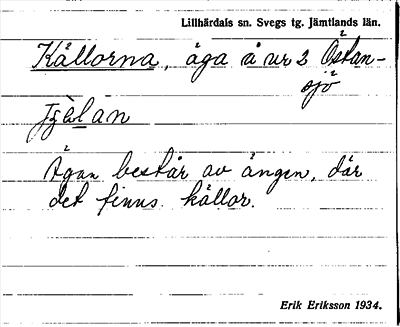 Lillhärdals sn. Svegs tg. Jämtlands län.
Källorna, äga å ur 2 Östan-
sjö
ägan består av ängen, där
det finns källor.
Erik Eriksson 1934.